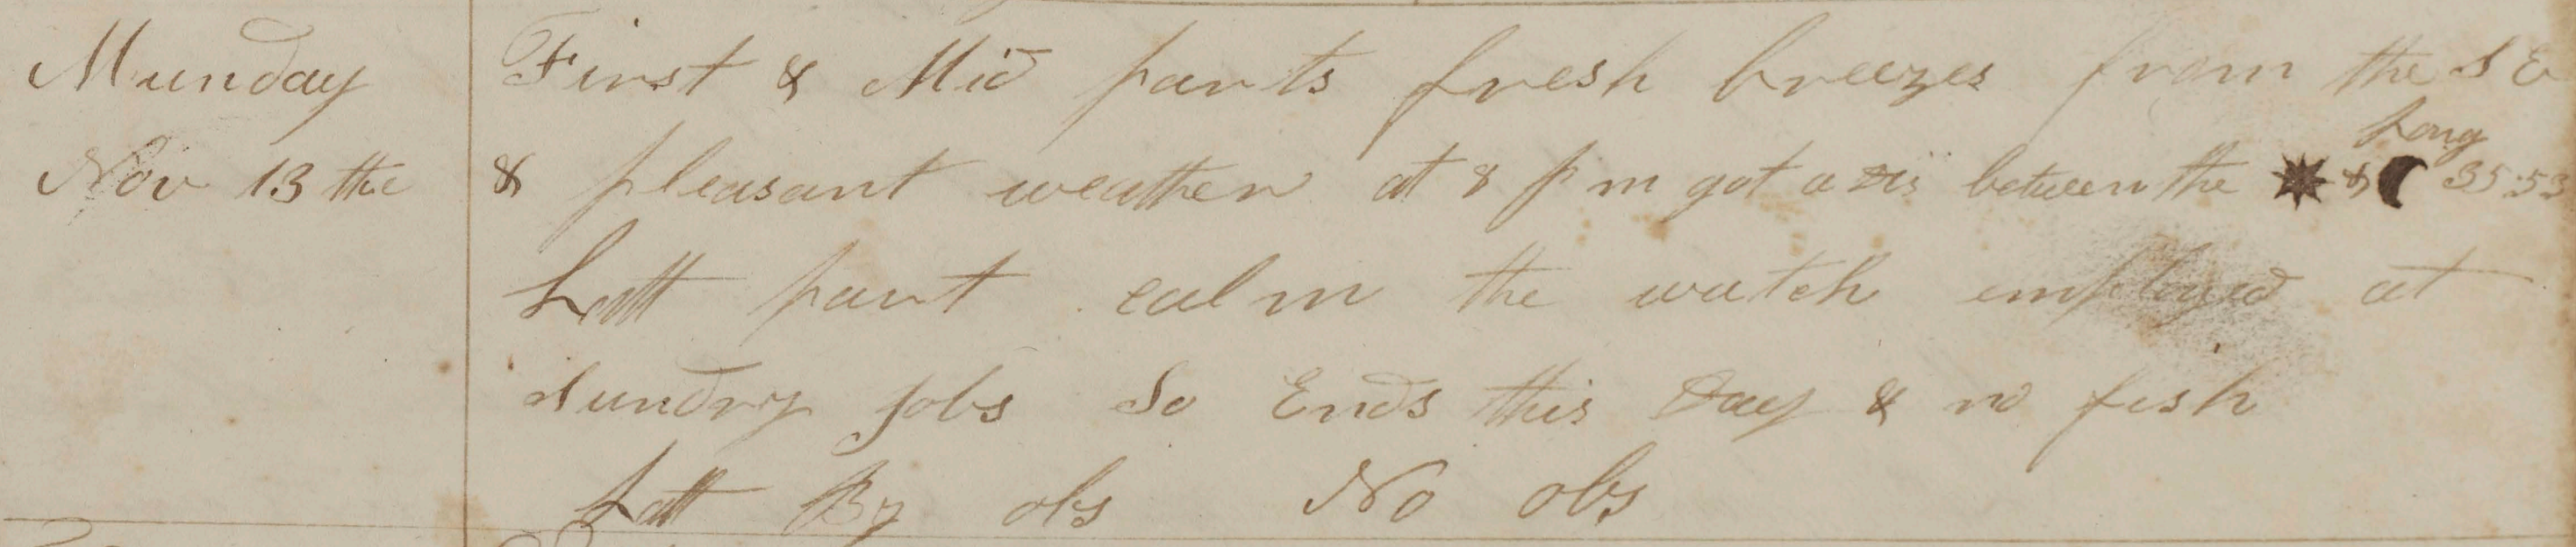 Munday First & Mid parts fresh breezes from the S E
Long
Nov 13 the & pleasant weather at 8 pm got a dis between the ✷ & ☾ 35:53
Latt part calm the watch employed at
sundry jobs So Ends this Day & no fish
Latt By obs No obs